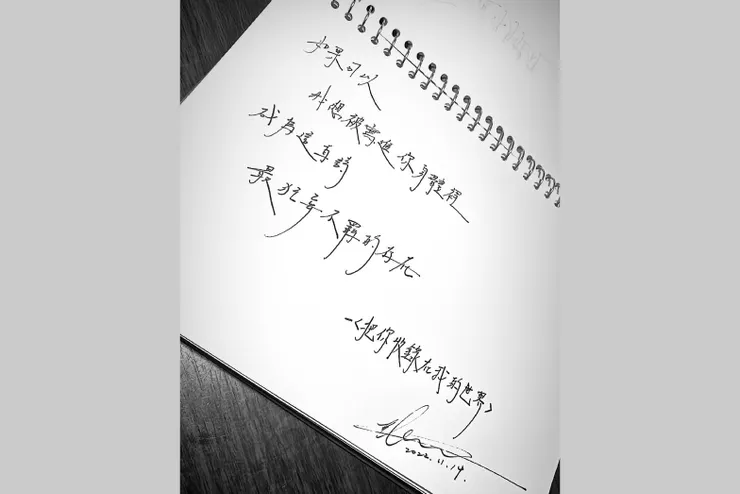 如果可以
我想被寫進你身體裡
成為這真誠
最狂妄不羈的存在
—<把你收錄在我的世界>
2022.11.14.